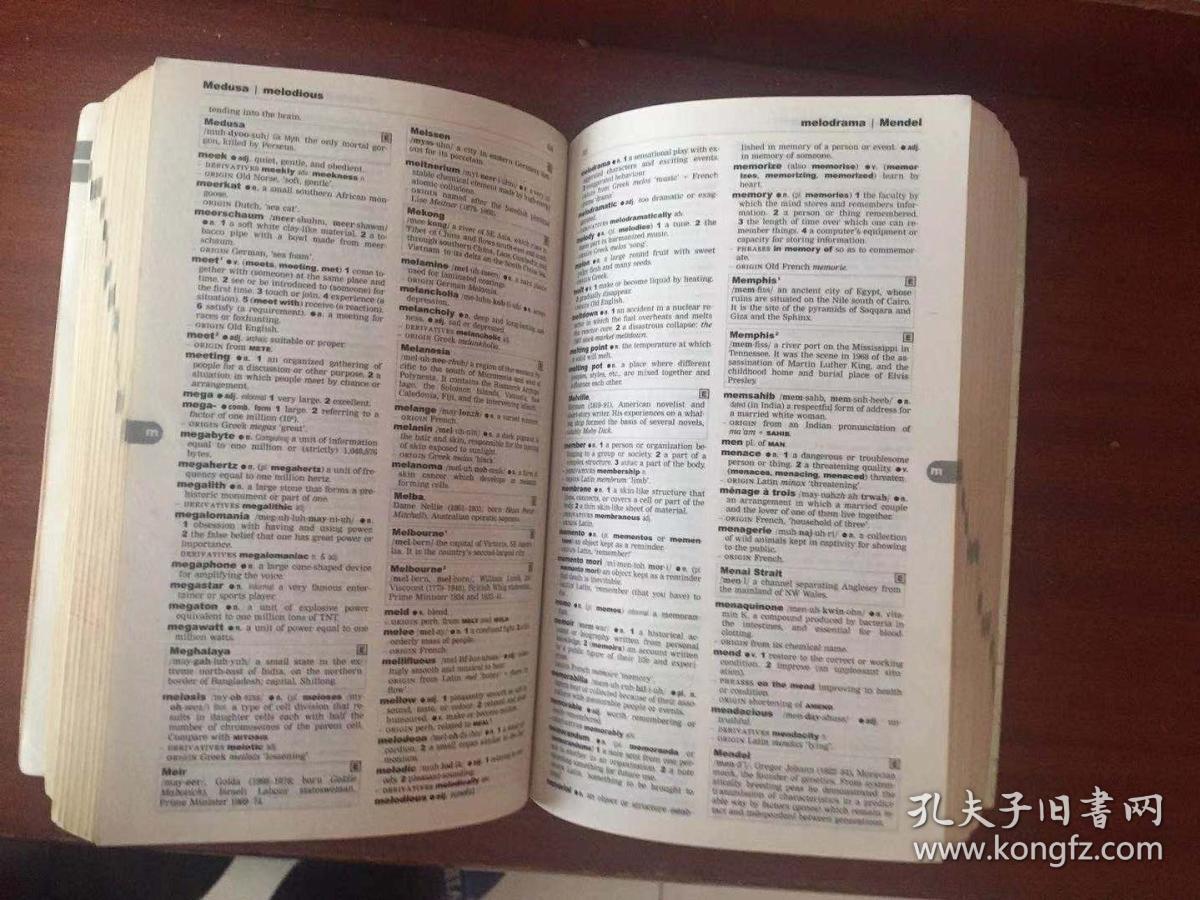 Medusa | melodious
tending into the brain.
Medusa
/muh-dyoo-suh/ Gk Myth. the only mortal gor-
gon, killed by Perseus.
meek ●adj. quiet, gentle, and obedient.
- DERIVATIVES meekly adv. meekness n.
- ORIGIN Old Norse, 'soft, gentle'.
meerkat ●n. a small southern African mon-
goose.
- ORIGIN Dutch, 'sea cat'.
meerschaum /meer-shuhm, meer-shawm/
●n. 1 a soft white clay-like material. 2 a to-
bacco pipe with a bowl made from meer-
schaum.
- ORIGIN German, 'sea foam'.
meet¹ ●v. (meets, meeting, met) 1 come to-
gether with (someone) at the same place and
time. 2 see or be introduced to (someone) for
the first time. 3 touch or join. 4 experience (a
situation). 5 (meet with) receive (a reaction).
6 satisfy (a requirement). ●n. a meeting for
races or foxhunting.
- ORIGIN Old English.
meet² ●adj. archaic suitable or proper.
- ORIGIN from METE.
meeting ●n. 1 an organized gathering of
people for a discussion or other purpose. 2 a
situation in which people meet by chance or
arrangement.
mega ●adj. informal 1 very large. 2 excellent.
mega- ●comb. form 1 large. 2 referring to a
factor of one million (10⁶).
- ORIGIN Greek megas 'great'.
megabyte ●n. Computing a unit of information
equal to one million or (strictly) 1,048,576
bytes.
megahertz ●n. (pl. megahertz) a unit of fre-
quency equal to one million hertz.
megalith ●n. a large stone that forms a pre-
historic monument or part of one.
- DERIVATIVES megalithic adj.
megalomania /meg-uh-luh-may-ni-uh/ ●n.
1 obsession with having and using power.
2 the false belief that one has great power or
importance.
DERIVATIVES megalomaniac n. & adj.
megaphone ●n. a large cone-shaped device
for amplifying the voice.
megastar ●n. informal a very famous enter-
tainer or sports player.
megaton ●n. a unit of explosive power
equivalent to one million tons of TNT.
megawatt ●n. a unit of power equal to one
million watts.
Meghalaya
/may-gah-luh-yuh/ a small state in the ex-
treme north-east of India, on the northern
border of Bangladesh; capital, Shillong.
meiosis /my-oh-siss/ ●n. (pl. meioses /my-
oh-seez/) Biol. a type of cell division that re-
sults in daughter cells each with half the
number of chromosomes of the parent cell.
Compare with MITOSIS.
- DERIVATIVES meiotic adj.
- ORIGIN Greek meiosis 'lessening'.
Meir
/may-eer/, Golda (1898-1978; born Goldie
Mabovich), Israeli Labour stateswoman,
Prime Minister 1969-74.
m
Meissen
/myss-uhn/ a city in eastern Germany,
ous for its porcelain.
meitnerium
stable chemical element made by high-energy
atomic collisions.
- ORIGIN named after the Swedish physicist
Lise Meitner (1878-1968).
Mekong
/mee-kong/ a river of SE Asia, which rises in
Tibet of China and flows south-east and south
through southern China, Laos, Cambodia, and
Vietnam to its delta on the South China Sea.
melamine /mel-uh-meen/ ●n. a hard plastic
used for laminated coatings.
- ORIGIN German Melamin.
melancholia /me-luhn-koh-li-uh/ ●n. severe
depression.
melancholy ●n. deep and long-lasting sad-
ness. ●adj. sad or depressed.
- DERIVATIVES melancholic adj.
- ORIGIN Greek melankholia.
Melanesia
cific to the south of Micronesia and west of
Polynesia. It contains the Bismarck Archipe-
lago, the Solomon Islands, Vanuatu, New
Caledonia, Fiji, and the intervening islands.
melange /may-lonzh/ ●n. a varied mixture.
- ORIGIN French.
melanin /mel-uh-nin/ ●n. a dark pigment in
the hair and skin, responsible for the tanning
of skin exposed to sunlight.
- ORIGIN Greek melas 'black'.
melanoma ●n. a form of
skin cancer which develops in melanin-
forming cells.
Melba
Dame Nellie (1861-1931; born Helen Porter
Mitchell), Australian operatic soprano.
Melbourne¹
/mel-bern/ the capital of Victoria, SE Austra-
lia. It is the country's second-largest city.
Melbourne²
/mel-bern, mel-born/, William Lamb, 2nd
Viscount (1779-1848), British Whig statesman,
Prime Minister 1834 and 1835-41.
meld ●v. blend.
- ORIGIN perh. from MELT and WELD.
melee /mel-ay/ ●n. 1 a confused fight. 2 a dis-
orderly mass of people.
- ORIGIN French.
mellifluous ●adj. pleas-
ingly smooth and musical to hear.
- ORIGIN from Latin mel 'honey' + fluere 'to
flow'.
mellow ●adj. 1 pleasantly smooth or soft in
sound, taste, or colour. 2 relaxed and good-
humoured. ●v. make or become mellow.
- ORIGIN perh. related to MEAL².
melodeon ●n. 1 a small ac-
cordion. 2 a small organ similar to the har-
monium.
melodic /muh-lod-ik/ ●adj. 1 relating to mel-
ody. 2 pleasant-sounding.
- DERIVATIVES melodically adv.
melodious ●adj. tuneful.
melodrama | Mendel
melodrama ●n. 1 a sensational play with ex-
aggerated characters and exciting events.
2 exaggerated behaviour.
- ORIGIN from Greek melos 'music' + French
drame 'drama'.
melodramatic ●adj. too dramatic or exag-
gerated.
- DERIVATIVES melodramatically adv.
melody ●n. (pl. melodies) 1 a tune. 2 the
main part in harmonized music.
- ORIGIN Greek melos 'song'.
melon ●n. a large round fruit with sweet
pulpy flesh and many seeds.
- ORIGIN Greek.
melt ●v. 1 make or become liquid by heating.
2 gradually disappear.
- ORIGIN Old English.
meltdown ●n. 1 an accident in a nuclear re-
actor in which the fuel overheats and melts
the reactor core. 2 a disastrous collapse: the
1987 stock market meltdown.
melting point ●n. the temperature at which
a solid will melt.
melting pot ●n. a place where different
peoples, styles, etc., are mixed together and
influence each other.
Melville,
Herman (1819-91), American novelist and
short-story writer. His experiences on a whal-
ing ship formed the basis of several novels,
notably Moby Dick.
member ●n. 1 a person or organization be-
longing to a group or society. 2 a part of a
complex structure. 3 archaic a part of the body.
- DERIVATIVES membership n.
- ORIGIN Latin membrum 'limb'.
membrane ●n. 1 a skin-like structure that
lines, connects, or covers a cell or part of the
body. 2 a thin skin-like sheet of material.
- DERIVATIVES membranous adj.
- ORIGIN Latin.
memento ●n. (pl. mementos or memen-
toes) an object kept as a reminder.
- ORIGIN Latin, 'remember!'
memento mori /mi-men-toh mor-i/ ●n. (pl.
memento mori) an object kept as a reminder
that death is inevitable.
- ORIGIN Latin, 'remember (that you have) to
die'.
memo ●n. (pl. memos) informal a memoran-
dum.
memoir /mem-war/ ●n. 1 a historical ac-
count or biography written from personal
knowledge. 2 (memoirs) an account written
by a public figure of their life and experi-
ences.
- ORIGIN French mémoire 'memory'.
memorabilia /mem-uh-ruh-bil-i-uh/ ●pl. n.
objects kept or collected because of their asso-
ciation with memorable people or events.
memorable ●adj. worth remembering or
easily remembered.
- DERIVATIVES memorably adv.
memorandum ●n. (pl. memoranda or
memorandums) 1 a note sent from one per-
son to another in an organization. 2 a note
recording something for future use.
- ORIGIN Latin, 'something to be brought to
mind'.
memorial ●n. an object or structure estab-
lished in memory of a person or event. ●adj.
in memory of someone.
memorize (also memorise) ●v. (memor-
izes, memorizing, memorized) learn by
heart.
memory ●n. (pl. memories) 1 the faculty by
which the mind stores and remembers infor-
mation. 2 a person or thing remembered.
3 the length of time over which one can re-
member things. 4 a computer's equipment or
capacity for storing information.
- PHRASES in memory of so as to commemor-
ate.
- ORIGIN Old French memorie.
Memphis¹
/mem-fiss/ an ancient city of Egypt, whose
ruins are situated on the Nile south of Cairo.
It is the site of the pyramids of Saqqara and
Giza and the Sphinx.
Memphis²
/mem-fiss/ a river port on the Mississippi in
Tennessee. It was the scene in 1968 of the as-
sassination of Martin Luther King, and the
childhood home and burial place of Elvis
Presley.
memsahib /mem-sahb, mem-suh-heeb/ ●n.
dated (in India) a respectful form of address for
a married white woman.
- ORIGIN from an Indian pronunciation of
ma'am + SAHIB.
men pl. of MAN.
menace ●n. 1 a dangerous or troublesome
person or thing. 2 a threatening quality. ●v.
(menaces, menacing, menaced) threaten.
- ORIGIN Latin minax 'threatening'.
ménage à trois /may-nahzh ah trwah/ ●n.
an arrangement in which a married couple
and the lover of one of them live together.
- ORIGIN French, 'household of three'.
menagerie /muh-naj-uh-ri/ ●n. a collection
of wild animals kept in captivity for showing
to the public.
- ORIGIN French.
Menai Strait
/men-I/ a channel separating Anglesey from
the mainland of NW Wales.
menaquinone /men-uh-kwin-ohn/ ●n. vita-
min K, a compound produced by bacteria in
the intestines, and essential for blood-
clotting.
- ORIGIN from its chemical name.
mend ●v. 1 restore to the correct or working
condition. 2 improve (an unpleasant situ-
ation).
- PHRASES on the mend improving in health
or condition.
- ORIGIN shortening of AMEND.
mendacious /men-day-shuss/ ●adj. un-
truthful.
- DERIVATIVES mendacity n.
- ORIGIN Latin mendax 'lying'.
Mendel
/men-d'l/, Gregor Johann (1822-84), Moravian
monk, the founder of genetics. From system-
atically breeding peas he demonstrated the
transmission of characteristics in a predict-
able way by factors (genes) which remain in-
tact and independent between generations,
m
孔夫子旧书网
www.kongfz.com